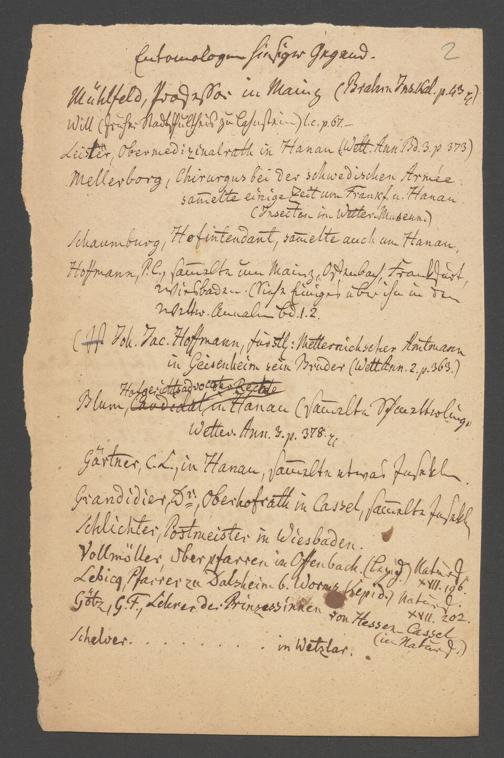 Entomologen hiesiger Gegend.
2
Mühlfeld, Professor in Mainz (Brahm Ins.Kal. p. 43 &c
Will (früher Stadtschultheis zu Lahnstein) l.c. p. 61.–
Leisler, Obermedizinalrath in Hanau (Wett. Ann. Bd. 3. p 373)
Mellerborg, Chirurgus bei der schwedischen Armée.
samelte einige Zeit um Frankf. u. Hanau
(Insecten im Wetter. Museum.)
Schaumburg, Hofintendant, samelte auch um Hanau,
Hoffmann, P.C., samelte um Mainz, Offenbach, Frankfurt,
Wiesbaden. (Siehe einiges über ihn in den
Wettw. Annalen bd. 1. 2.
Joh. Jac. Hoffmann, fürstl: Metternichscher Amtmann
in Geisenheim sein Bruder (Wett Ann. 2. p. 363.)
Hofgerichtsadvocat
Blum, Candidat in Hanau (samelte Schmetterlinge
Wetter. Ann. 3. p. 378. &c
Gärtner, C.L., in Hanau, samelte etwas Insekten.
Grandidier, Dr., Oberhofrath in Cassel, samelte Insekten
Schlichter, Postmeister in Wiesbaden.
Vollmöller, Oberpfarrer in Offenbach. (Lepid.) Naturf. XVII. 196.
Lebicq, Pfarrer zu Dalsheim b. Worms (Lepid.) Naturf. XVII. 202.
Götz, G.F., Lehrer der Prinzessinnen von Hessen-Cassel
(im Naturf.)
Schelver . . . . . . . . . . . in Wetzlar.